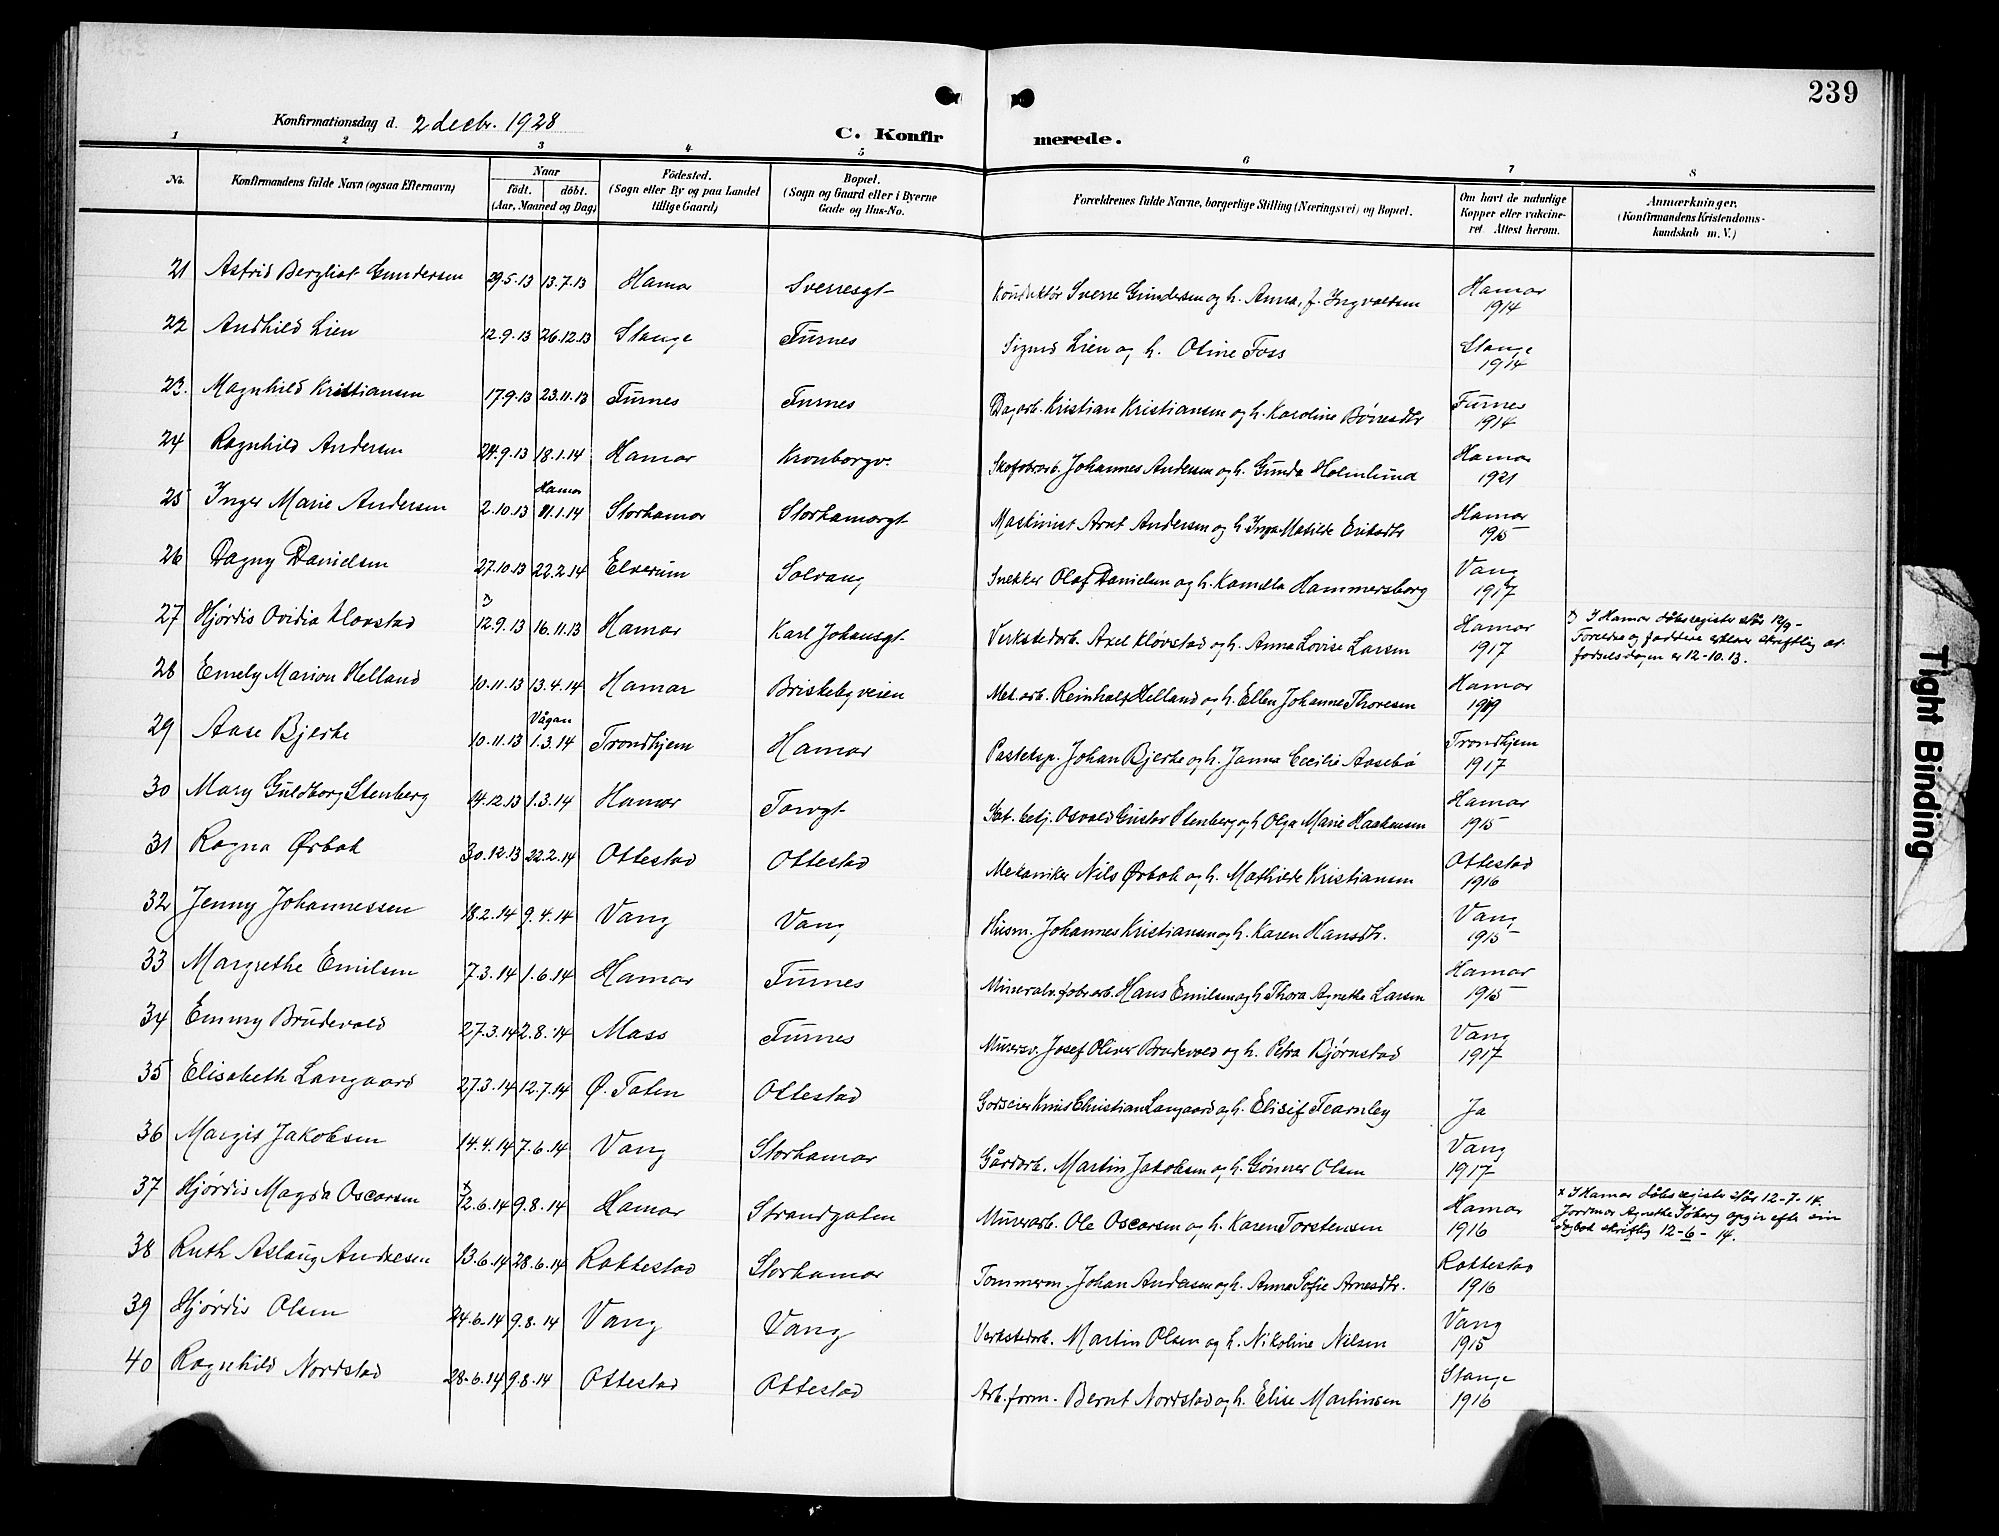 239
Konfirmationsdag d. 2 decbr. 1928
C. Konfirmerede.
1 2 3 4 5 6 7 8
No.
Konfirmandens fulde Navn (ogsaa Efternavn)
Naar
födt. döbt.
(Aar, Maaned og Dag)
Födested.
(Sogn eller By og paa Landet
tillige Gaard)
Bopæl.
(Sogn og Gaard eller i Byerne
Gade og Hus-No.
Forældrenes fulde Navne, borgerlige Stilling (Næringsvei) og Bopæl.
Om havt de naturlige
Kopper eller vakcine-
ret Attest herom.
Anmærkninger.
(Konfirmandens Kristendoms-
kundskab m. V.)
21 Astrid Bergliot Gundersen 29.5.13 13.7.13 Hamar Sverresgt Konduktör Sverre Gundersen og h. Anna, f. Ingvaldsen Hamar 1914
22 Andhild Lien 12.9.13 26.12.13 Stange Furnes Sigurd Lien og h. Oline Foss Stange 1914
23. Magnhild Kristiansen 17.9.13 23.11.13 Furnes Furnes Dagarb. Kristian Kristiansen og h. Karoline Børresdtr Furnes 1914
24 Ragnhild Andersen 24.9.13 18.1.14 Hamar Kronborgv. Skofabrarb. Johannes Andersen og h. Gunda Holmlund Hamar 1921
25 Inger Marie Andersen 2.10.13 Hamar 11.1.14 Storhamar Storhamargt Maskinist Arnt Andersen og h Inga Matilde Eriksdtr Hamar 1915
26 Dagny Danielsen 27.10.13 22.2.14 Elverum Solvang Snekker Olaf Danielsen og h. Kamilla Hammersborg Vang 1917
27 Hjørdis Ovidia Kløvstad x) 12.9.13 16.11.13 Hamar Karl Johansgt Verkstedarb. Axel Kløvstad og h. Anna Lovise Larsen Hamar 1917
x) I Hamar døbsregister står 12/9-
Foreldre og faddere erklærer skriftlig at
fødselsdagen er 12-10.13.
28 Emely Marion Helland 10.11.13 13.4.14 Hamar Briskebyveien Mek.arb. Reinholdt Helland og h. Ellen Johanne Thoresen Hamar 1919
29 Aase Bjerke 10.11.13 Vågan 1.3.14 Trondhjem Hamar Posteksp. Johan Bjerke og h. Janna Cecilie Aasebø Trondhjem 1917
30 Mary Guldborg Stenberg 14.12.13 1.3.14 Hamar Torvgt Stat.betj. Osvald Gustav Stenberg og h Olga Marie Haakensen Hamar 1915
31 Ragna Ørbak 30.12.13 22.2.14 Ottestad Ottestad Mekaniker Nils Ørbak og h. Mathilde Kristiansen Ottestad 1916
32 Jenny Johannessen 18.2.14 9.4.14 Vang Vang Husm. Johannes Kristiansen og h. Karen Hansdtr. Vang 1915
33 Margrethe Emilsen 7.3.14 1.6.14 Hamar Furnes Mineralv.fabr.arb. Hans Emilsen og h Thora Agnethe Larsen Hamar 1915
34 Emmy Brudevold 27.3.14 2.8.14 Moss Furnes Murersv. Josef Oliver Brudevold og h. Petra Bjørnstad Vang 1917
35 Elisabeth Langaard 27.3.14 12.7.14 Ø. Toten Ottestad Godseier Knut Christian Langaard og h. Elisif Fearnley Ja
36 Margit Jakobsen 14.4.14 7.6.14 Vang Storhamar Gårdarb. Martin Jakobsen og h. Gønner Olsen Vang 1917
37 Hjørdis Magda Oscarsen x) 12.6.14 9.8.14 Hamar Strandgaten Murerarb. Ole Oscarsen og h. Karen Torstensen Hamar 1916
x I Hamar dåbsregister står 12-7-14.
Jordmor Agnethe Søberg opgir efter sin
dagbok skriftlig 12-6-14.
38 Ruth Aslaug Andresen 13.6.14 28.6.14 Rottestad Storhamar Tømmerm. Johan Andresen og h. Anna Sofie Arnesdtr. Rottestad 1916
39 Hjørdis Olsen 24.6.14 9.8.14 Vang Vang Verkstedarb. Martin Olsen og h. Nikoline Nilsen Vang 1915
40 Ragnhild Nordstad 28.6.14 9.8.14 Ottestad Ottestad Arb.form. Bernt Nordstad og h. Elise Martinsen Stange 1916
Tight Binding